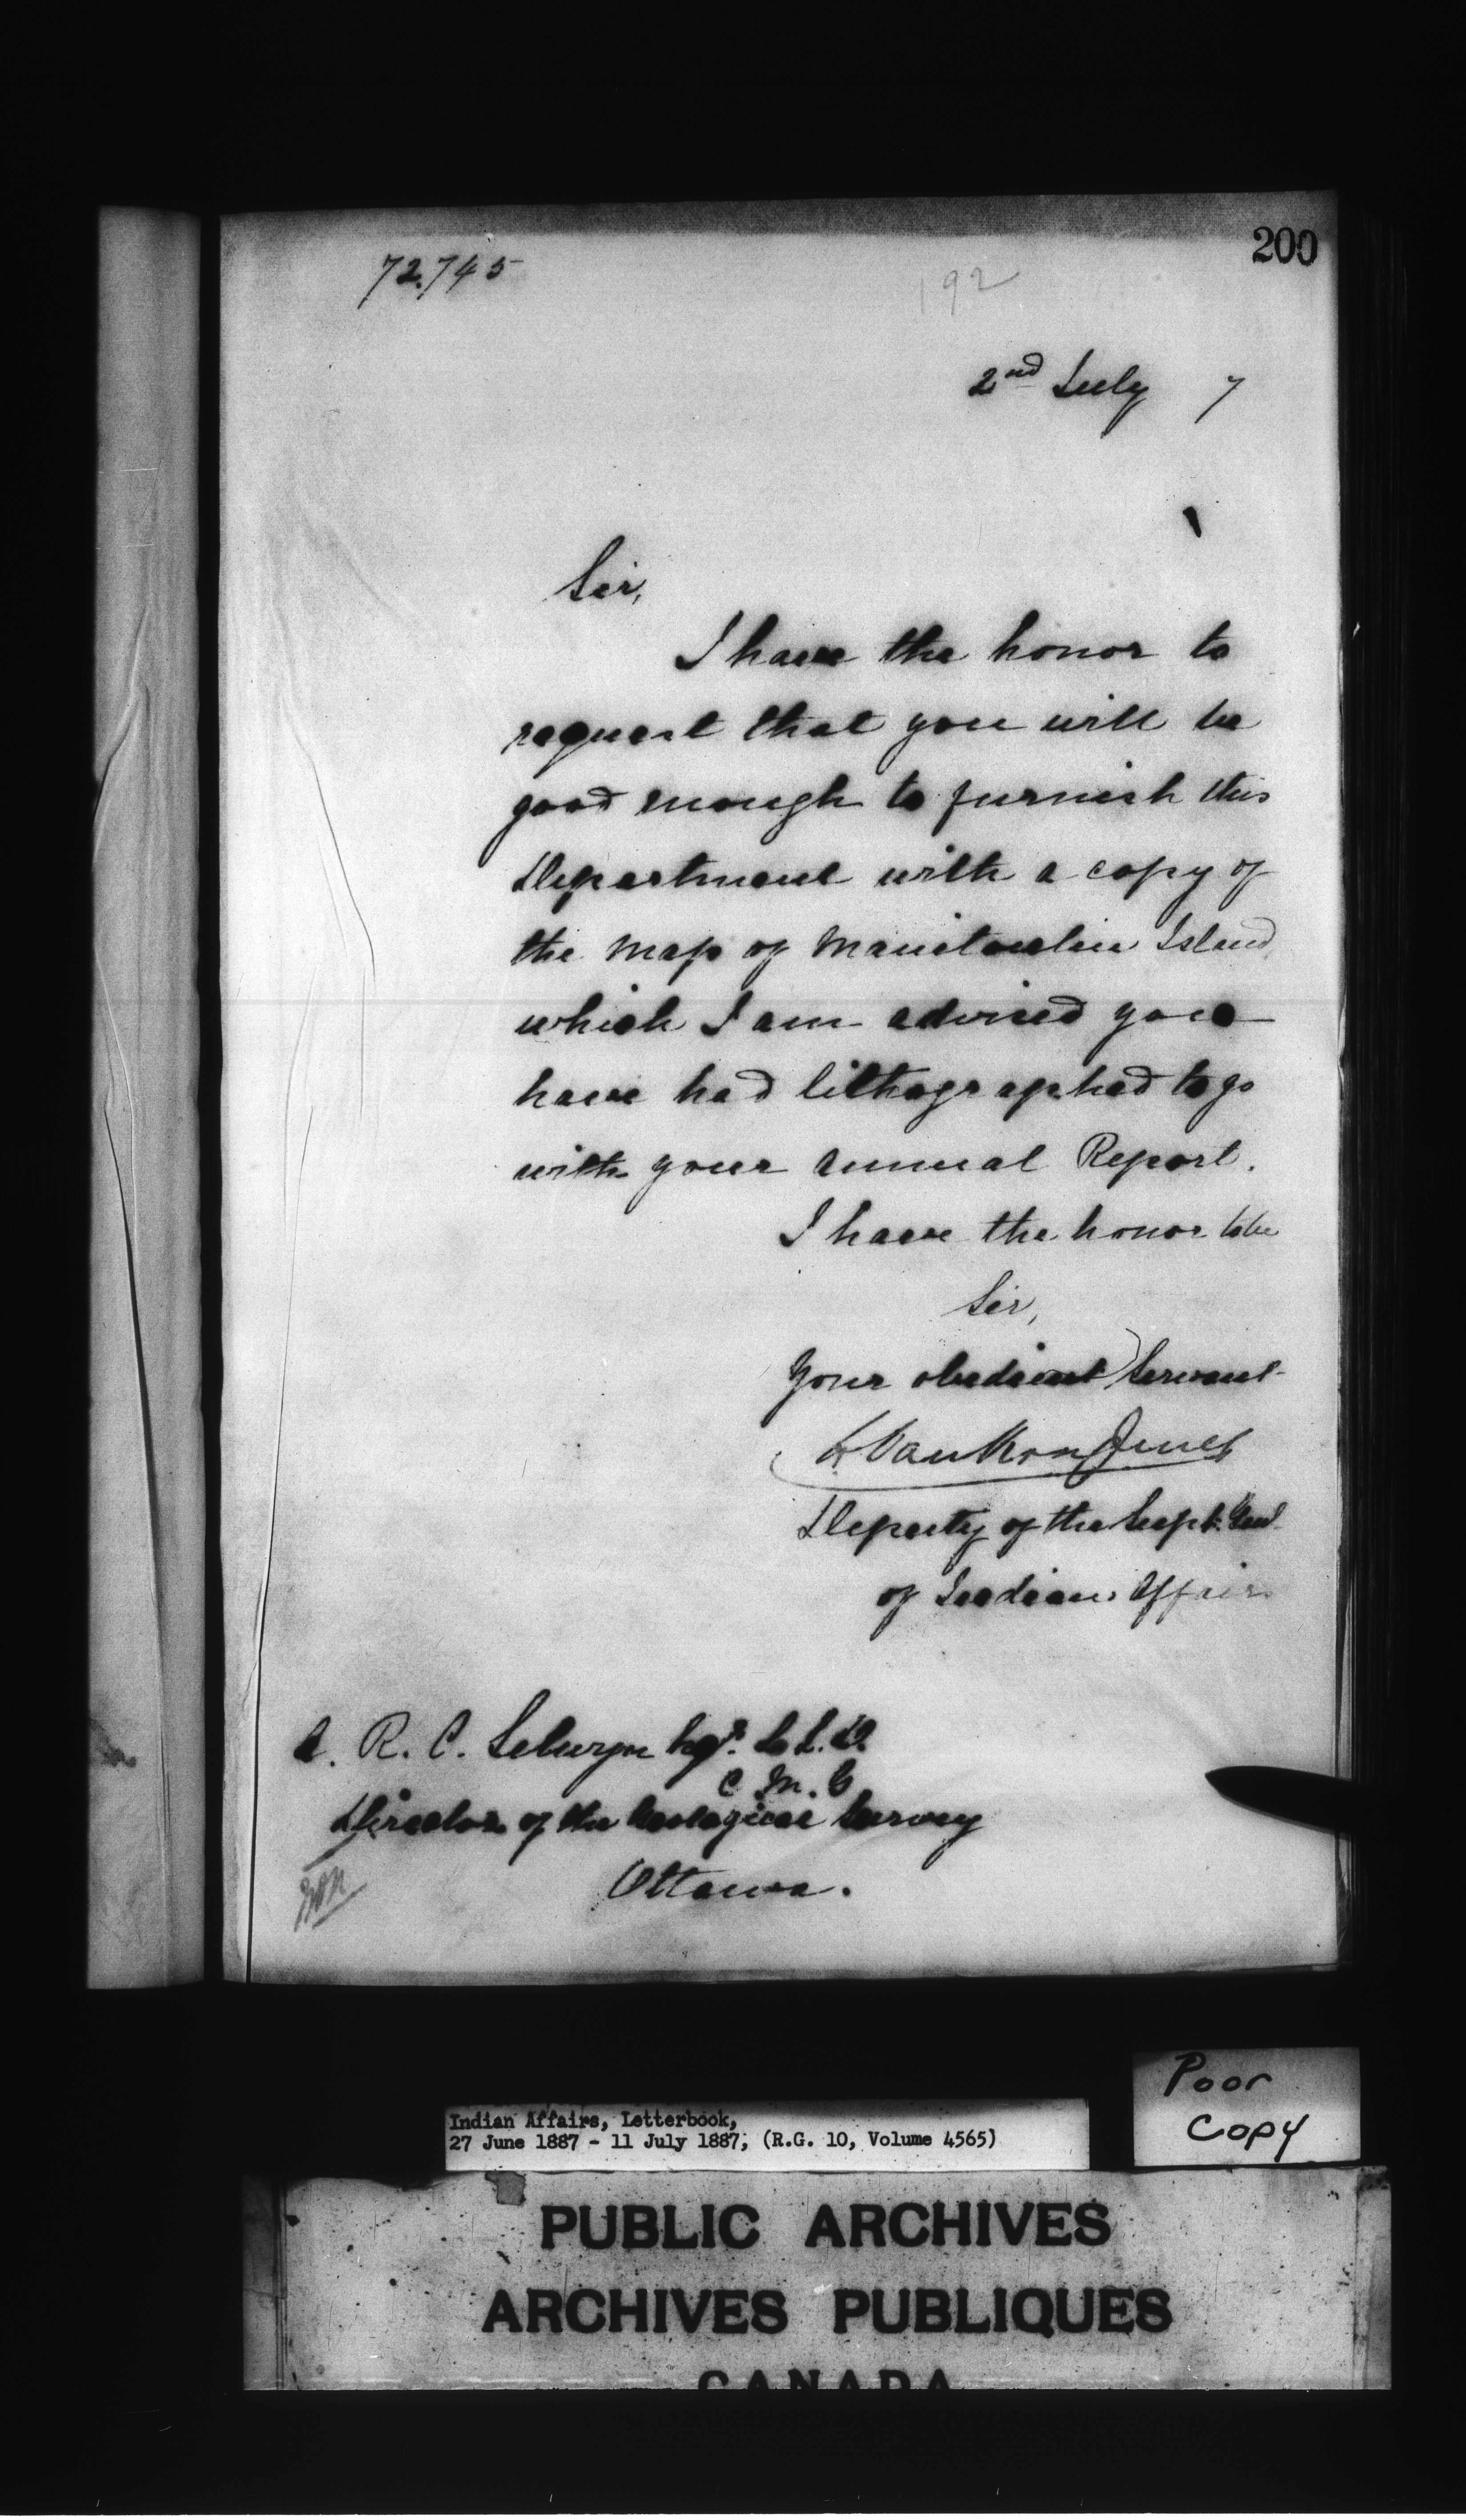 200
72.745
192
2nd July 7
Sir,
I have the honor to
request that you will be
good enough to furnish this
Department with a copy of
the Map of Manitoulin Island
which I am advised you
have had lithographed to go
with your Annual Report.
I have the honor to be
Sir,
Your obedient Servant
L. VanKoughnet
Deputy of the Supt. Genl.
of Indian Affairs
A. R. C. Selwyn Esqr. L.L.D.
C.M.G
Director of the Geological Survey
Ottawa.
Poor
Copy
Indian Affairs, Letterbook,
27 June 1887 - 11 July 1887, (R.G. 10, Volume 4565)
PUBLIC ARCHIVES
ARCHIVES PUBLIQUES
CANADA